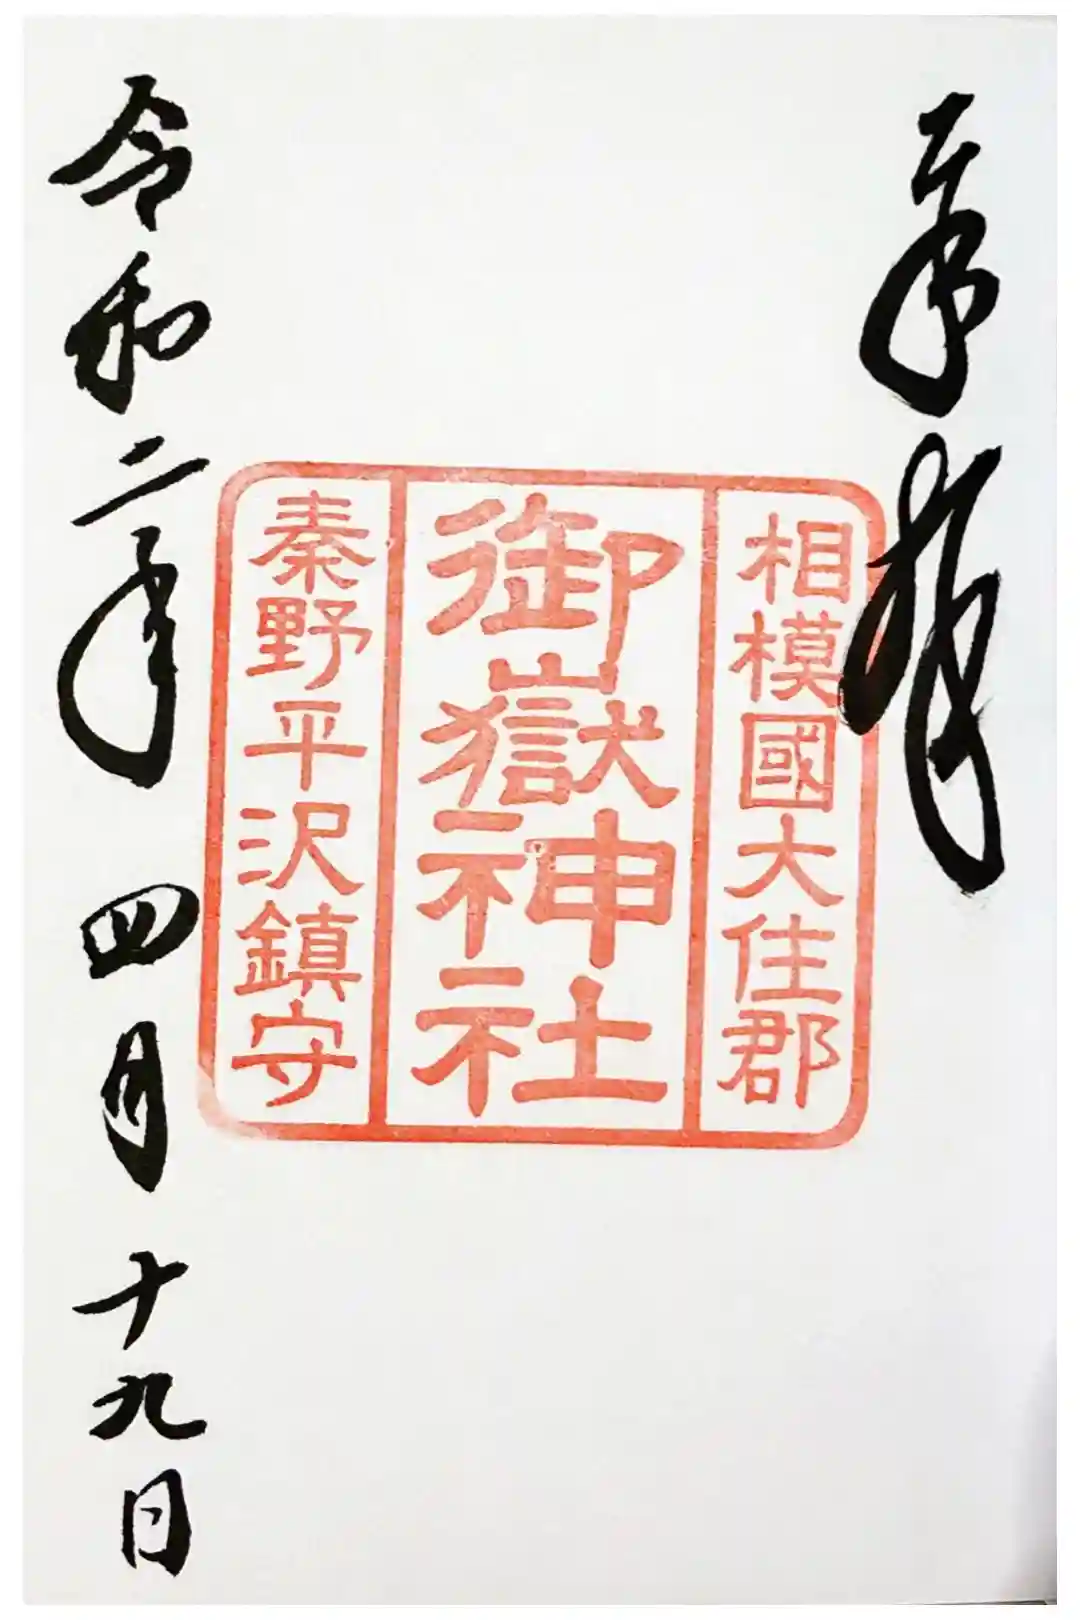 奉拝
相模國大住郡
御嶽神社
秦野平沢鎮守
令和二年四月十九日